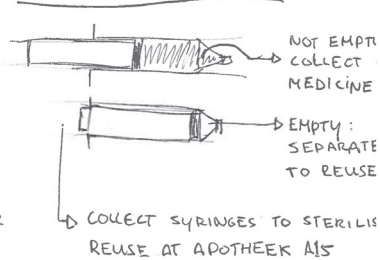 NOT EMPTY
COLLECT
MEDICINE
EMPTY:
SEPARATE
TO REUSE
COLLECT SYRINGES TO STERILIS
REUSE AT APOTHEEK A15